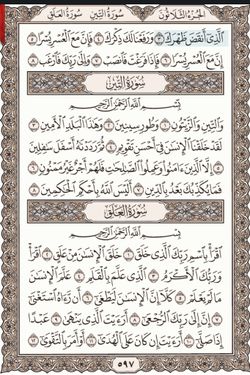 الجزء الثلاثون سورة التين سورة العلق
الَّذِي أَنقَضَ ظَهْرَكَ ٣ وَرَفَعْنَا لَكَ ذِكْرَكَ ٤ فَإِنَّ مَعَ الْعُسْرِ يُسْرًا ٥
إِنَّ مَعَ الْعُسْرِ يُسْرًا ٦ فَإِذَا فَرَغْتَ فَانصَبْ ٧ وَإِلَىٰ رَبِّكَ فَارْغَب ٨
سورة التين
بِسْمِ اللَّهِ الرَّحْمَٰنِ الرَّحِيمِ
وَالتِّينِ وَالزَّيْتُونِ ١ وَطُورِ سِينِينَ ٢ وَهَٰذَا الْبَلَدِ الْأَمِينِ ٣
لَقَدْ خَلَقْنَا الْإِنسَانَ فِي أَحْسَنِ تَقْوِيمٍ ٤ ثُمَّ رَدَدْنَاهُ أَسْفَلَ سَافِلِينَ ٥
إِلَّا الَّذِينَ آمَنُوا وَعَمِلُوا الصَّالِحَاتِ فَلَهُمْ أَجْرٌ غَيْرُ مَمْنُونٍ ٦
فَمَا يُكَذِّبُكَ بَعْدُ بِالدِّينِ ٧ أَلَيْسَ اللَّهُ بِأَحْكَمِ الْحَاكِمِينَ ٨
سورة العلق
بِسْمِ اللَّهِ الرَّحْمَٰنِ الرَّحِيمِ
اقْرَأْ بِاسْمِ رَبِّكَ الَّذِي خَلَقَ ١ خَلَقَ الْإِنسَانَ مِنْ عَلَقٍ ٢ اقْرَأْ
وَرَبُّكَ الْأَكْرَمُ ٣ الَّذِي عَلَّمَ بِالْقَلَمِ ٤ عَلَّمَ الْإِنسَانَ
مَا لَمْ يَعْلَمْ ٥ كَلَّا إِنَّ الْإِنسَانَ لَيَطْغَىٰ ٦ أَن رَّآهُ اسْتَغْنَىٰ
٧ إِنَّ إِلَىٰ رَبِّكَ الرُّجْعَىٰ ٨ أَرَأَيْتَ الَّذِي يَنْهَىٰ ٩ عَبْدًا
إِذَا صَلَّىٰ ١٠ أَرَأَيْتَ إِن كَانَ عَلَى الْهُدَىٰ ١١ أَوْ أَمَرَ بِالتَّقْوَىٰ ١٢
٥٩٧